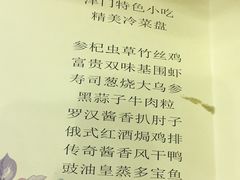 津门特色小吃
精美冷菜盘
参杞虫草竹丝鸡
富贵双味基围虾
寿司葱烧大乌参
黑蒜子牛肉粒
罗汉酱香扒肘子
俄式红酒焗鸡排
传奇酱香风干鸭
豉油皇蒸多宝鱼